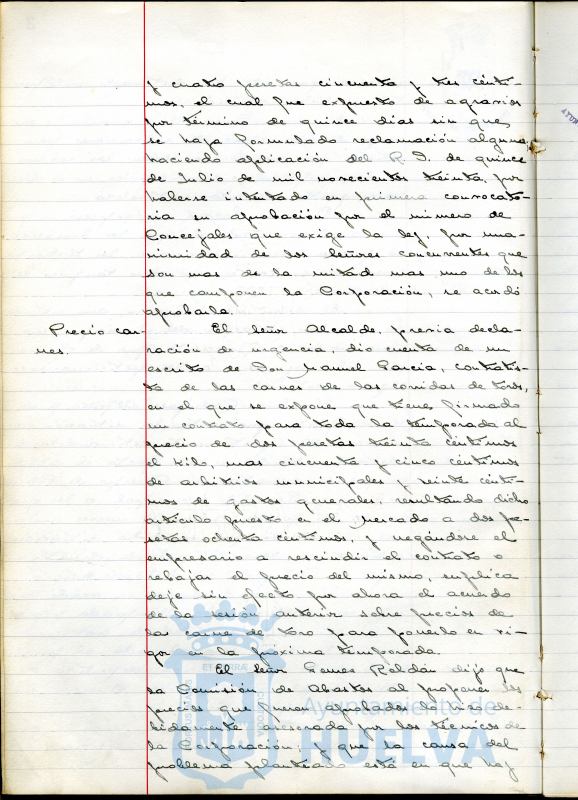 y cuatro pesetas cincuenta y tres cénti-
mos, el cual fue expuesto de agravios
por término de quince días sin que
se haya formulado reclamación alguna
haciendo aplicación del R. D. de quince
de Julio de mil novecientos treinta, por
haberse intentado en primera convocato-
ria su aprobación por el número de
Concejales que exige la ley, por una-
nimidad de los Señores concurrentes que
son mas de la mitad mas uno de los
que componen la Corporación, se acordó
aprobarla.
Precio car-
nes.
El Señor Alcalde, previa decla-
ración de urgencia, dio cuenta de un
escrito de Don Manuel Garcia, contratis-
ta de las carnes de las corridas de toros,
en el que se expone que tiene firmado
un contrato para toda la temporada al
precio de dos pesetas treinta céntimos
el kilo, mas cincuenta y cinco céntimos
de arbitrios municipales y veinte cénti-
mos de gastos generales, resultando dicho
artículo puesto en el Mercado a dos pe-
setas ochenta céntimos, y negándose el
empresario a rescindir el contrato o
rebajar el precio del mismo, suplica
deje sin efecto por ahora el acuerdo
de la sesión anterior sobre precios de
las carne de toro para ponerlo en vi-
gor en la próxima temporada.
El Señor Gomez Roldán dijo que
la Comisión de Abastos al proponer los
precios que fueron aprobados lo hizo de-
bidamente asesorada por los técnicos de
la Corporación, y que la causa del
problema planteado está en que hay
Ayuntamiento de
HUELVA